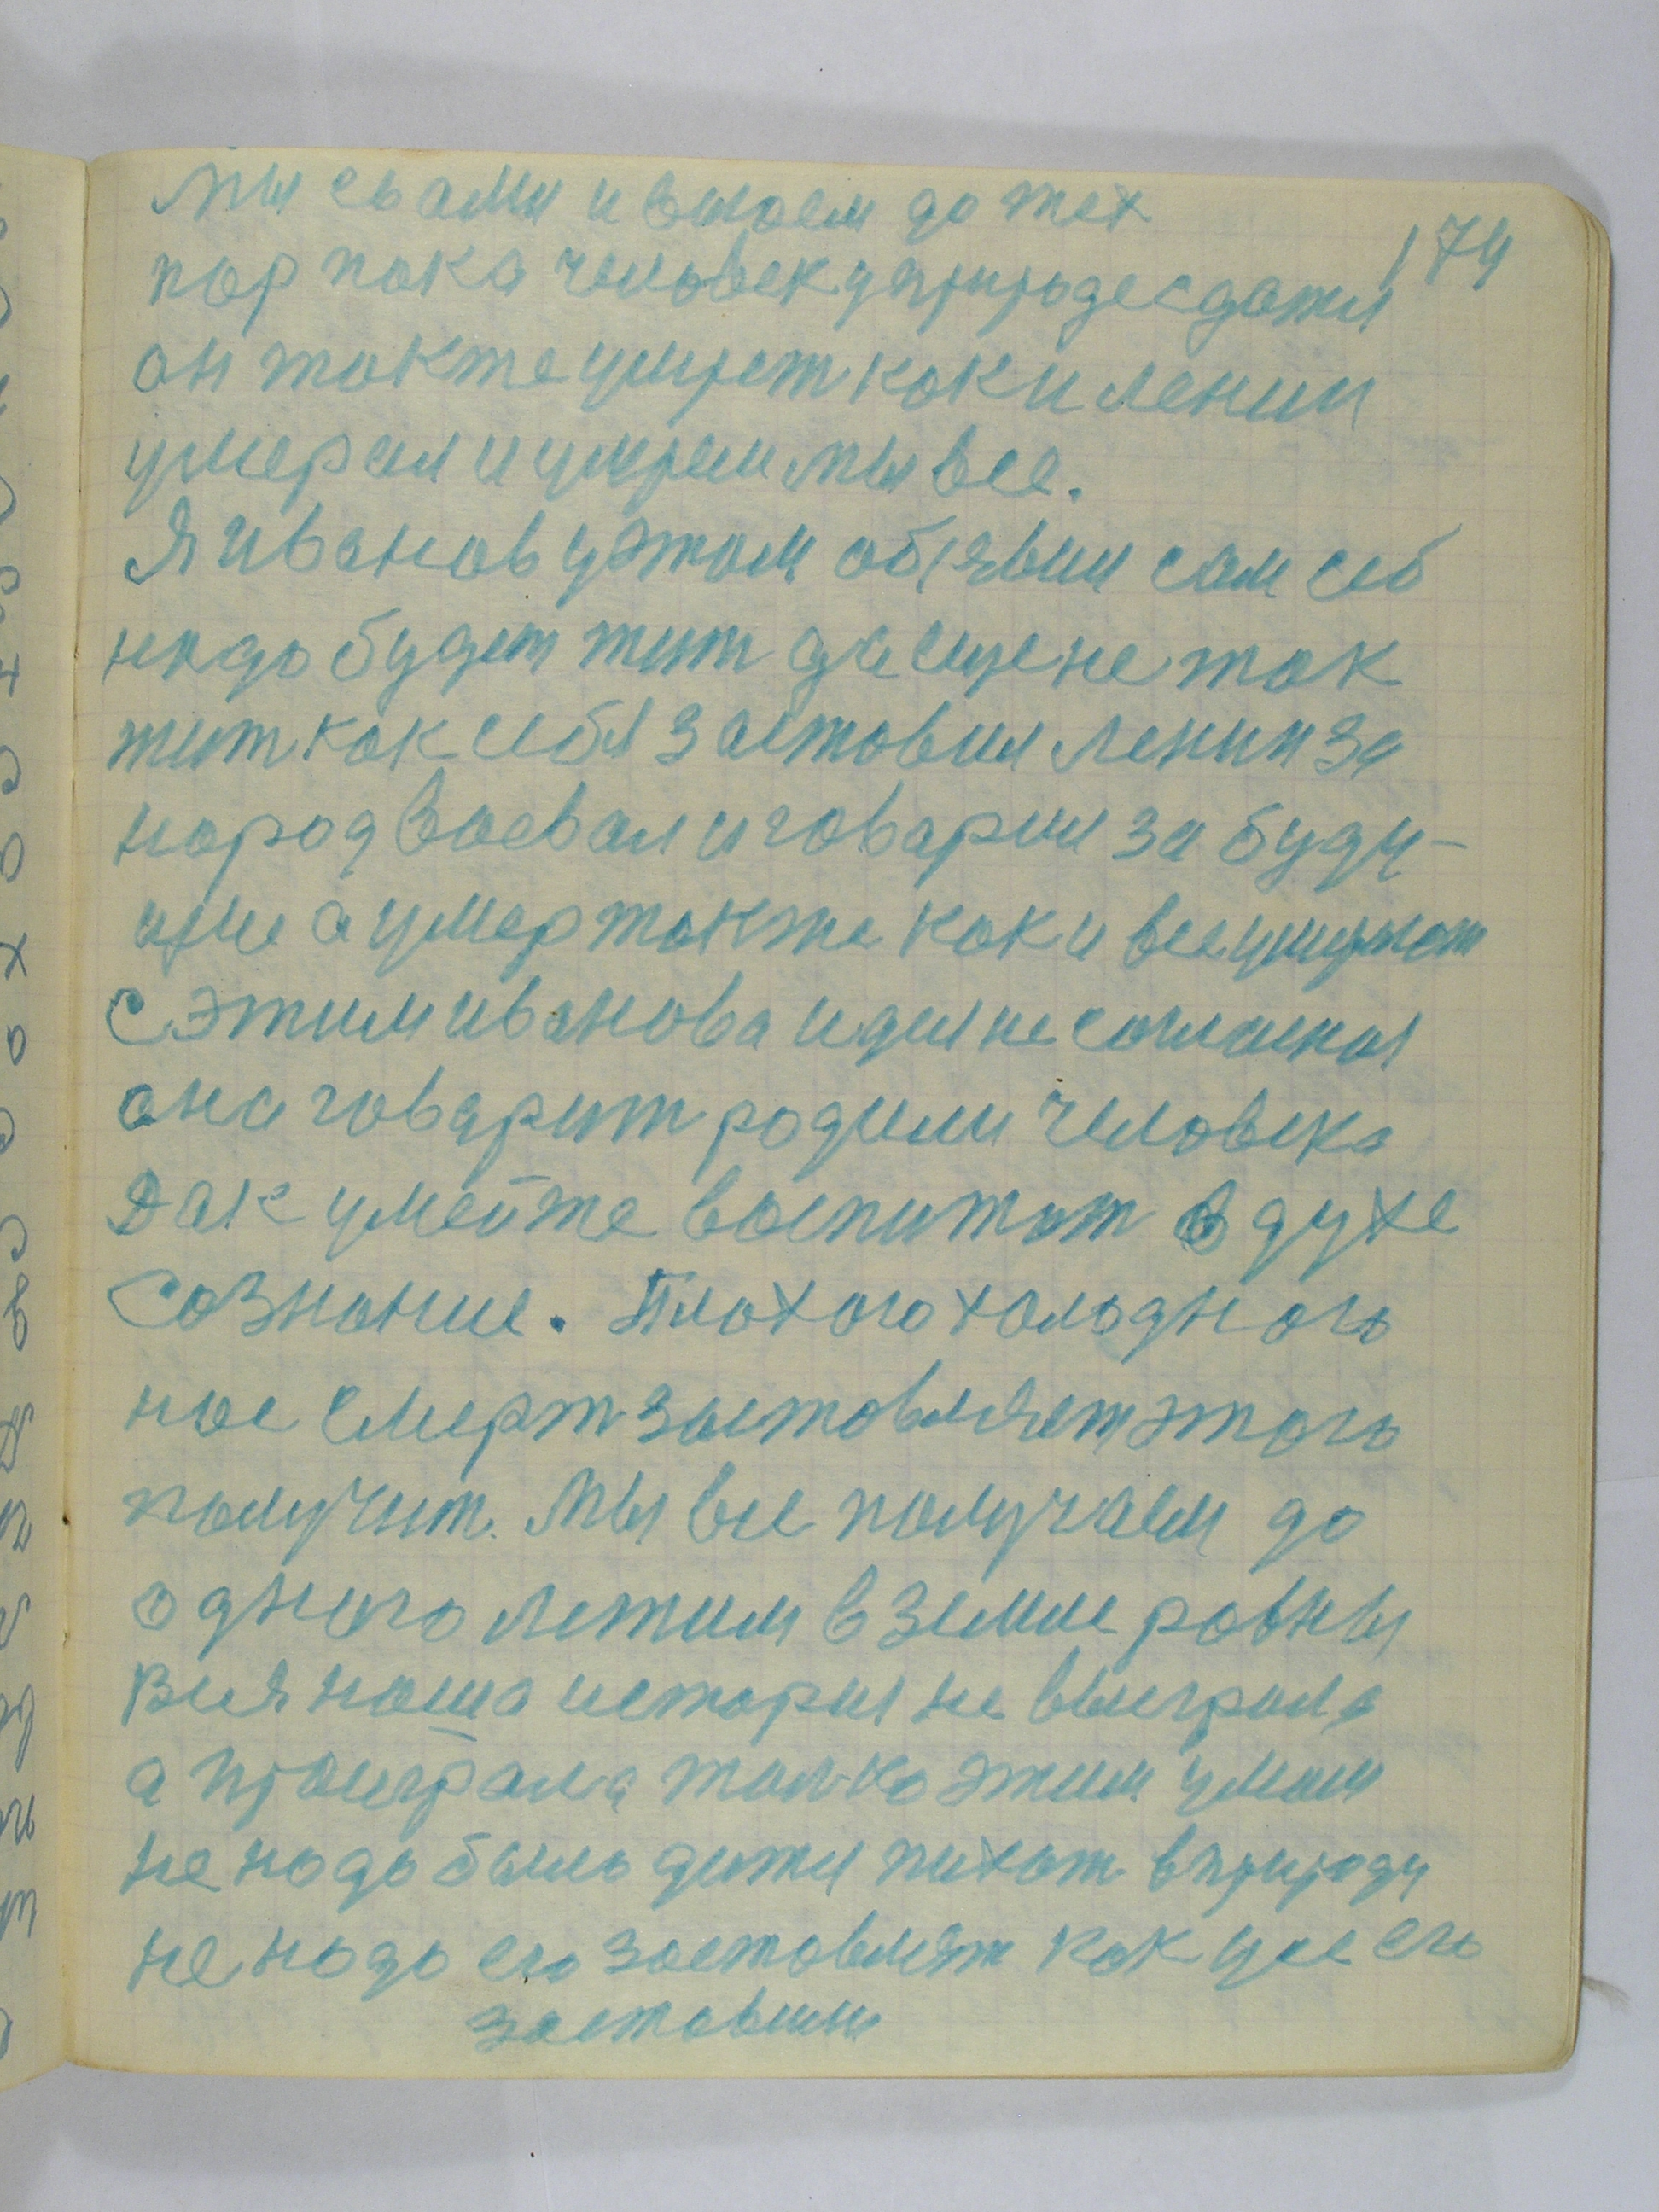 мы с вами и вносем до тех
174
пор пока человек у природе сдатся
он также умрет как и ленин
умерал и умрем мы все.
Я иванов у этом обявил сам себ
надо будет жит да еще не так
жит как себя заставил Ленин за
народ воевал и говарил за буду-
ще а умер также как и все умирают
С этим иванова идея не согласная
она говарит родили человека
Дак умейте воспитат в духе
Сознание. Плохого холодного
нас смерт заставляет этого
получит. Мы все получаем до
одного лежим в земле равны
Вся наша история не выеграла
а проеграла только этим умом
не надо было дитя пихат в природу
не надо его заставлят как уже его
заставили